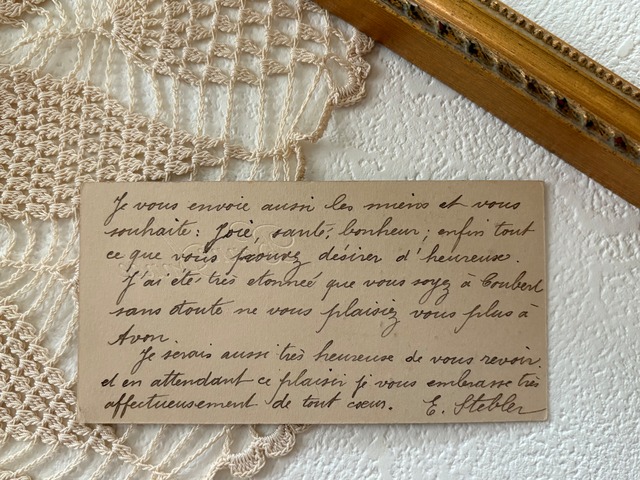 Je vous envoie aussi les miens et vous
souhaite: Joie, santé, bonheur; enfin tout
ce que vous pouvez désirer d'heureuse.
J'ai été très etonneé que vous soyez à Coubert
sans doute ne vous plaisiez vous plus à
Avon.
Je serais aussi très heureuse de vous revoir.
et en attendant ce plaisir je vous embrasse très
affectueusement de tout cœur. E. Stebler